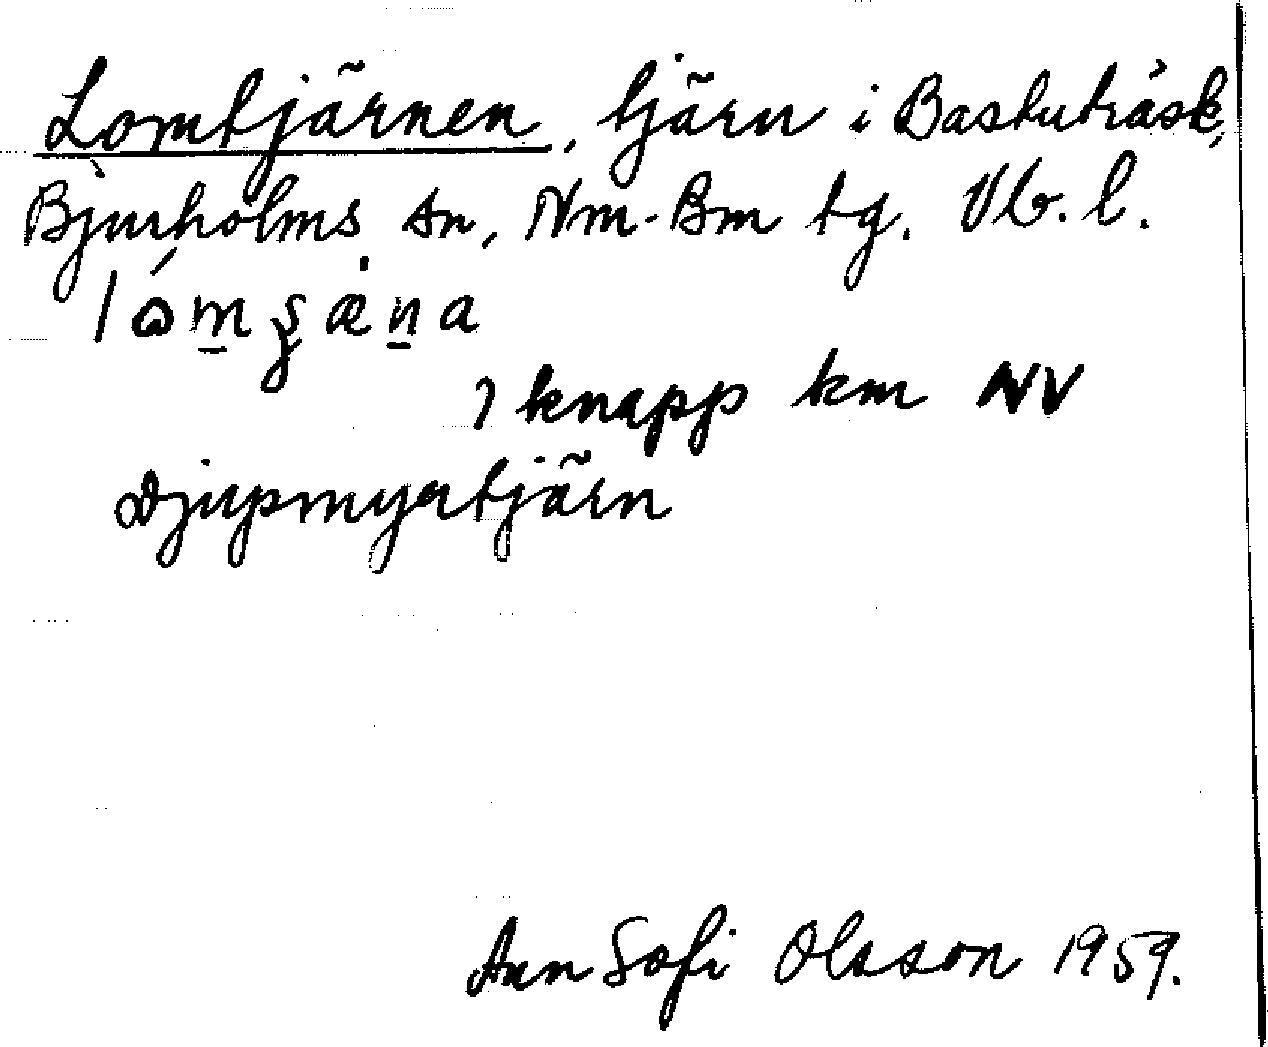 Lomtjärnen, tjärn i Bastuträsk,
Bjurholms sn, Nm-Bm tg. Vb. l.
1 knapp km NV
Djupmyrtjärn
Ann Sofi Olsson 1959.